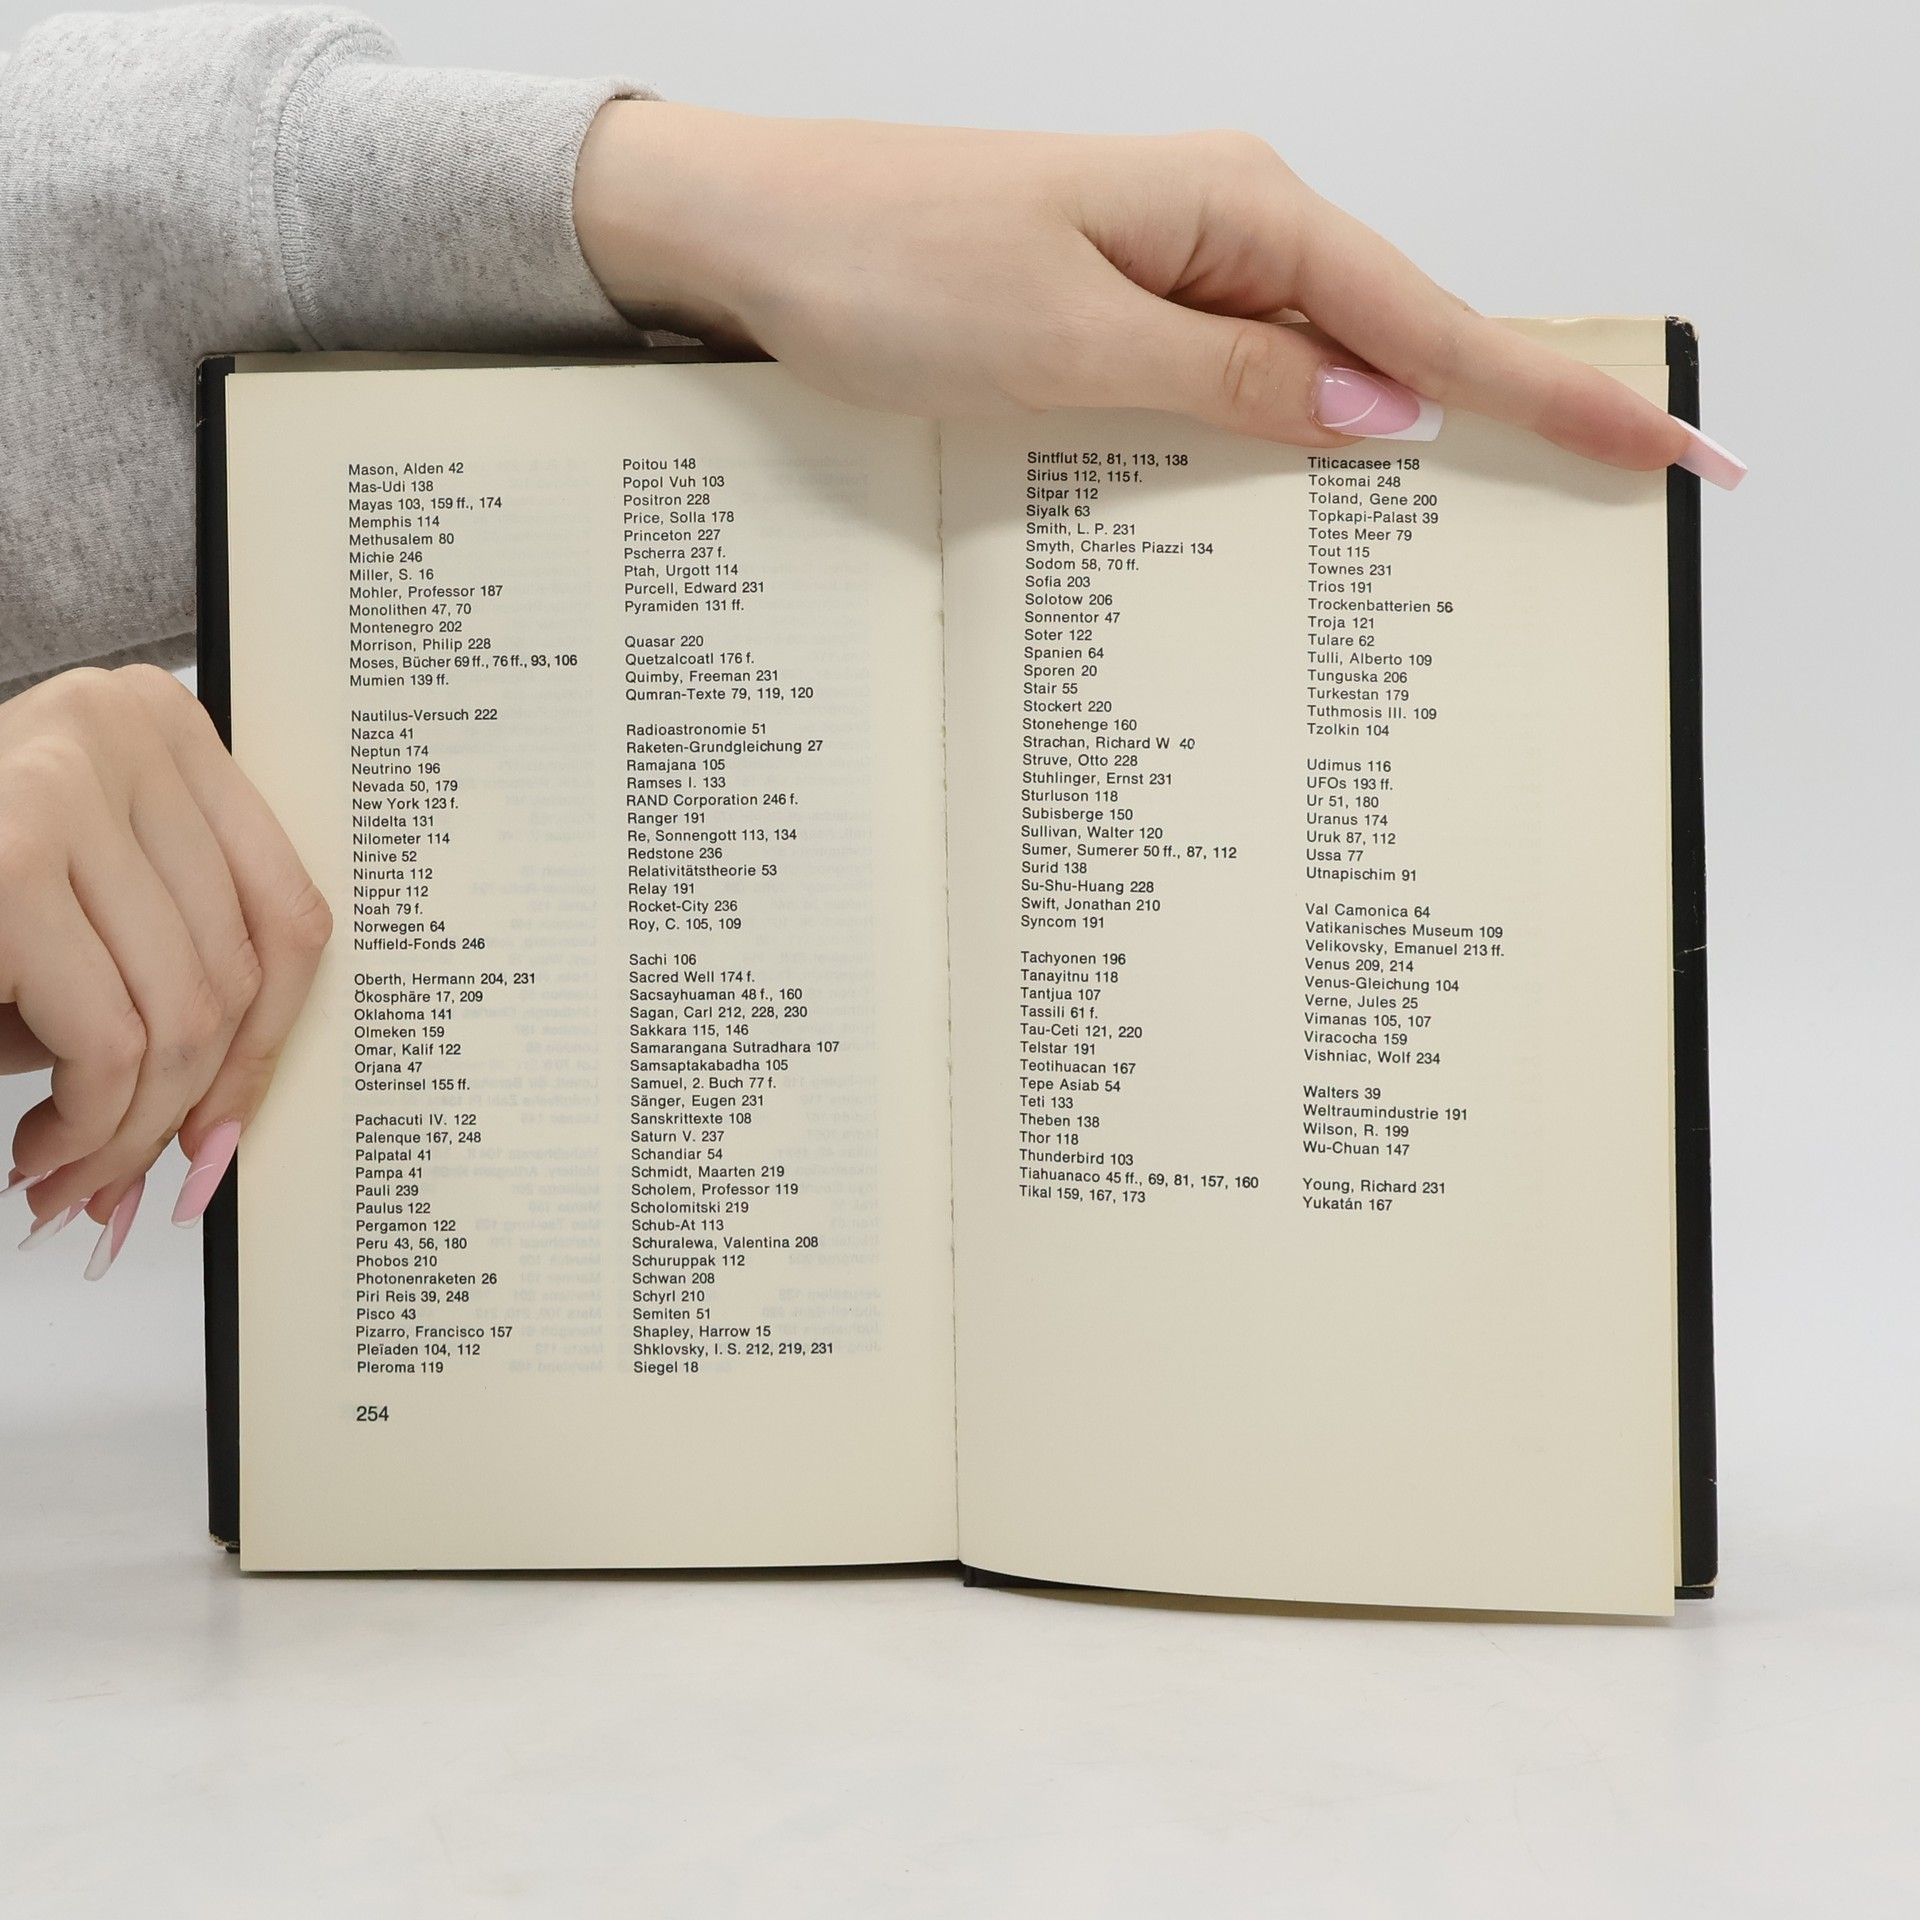 Mason, Alden 42
Mas-Udi 138
Mayas 103, 159 ff., 174
Memphis 114
Methusalem 80
Michie 246
Miller, S. 16
Mohler, Professor 187
Monolithen 47, 70
Montenegro 202
Morrison, Philip 228
Moses, Bücher 69 ff., 76 ff., 93, 106
Mumien 139 ff.
Nautilus-Versuch 222
Nazca 41
Neptun 174
Neutrino 196
Nevada 50, 179
New York 123 f.
Nildelta 131
Nilometer 114
Ninive 52
Ninurta 112
Nippur 112
Noah 79 f.
Norwegen 64
Nuffield-Fonds 246
Oberth, Hermann 204, 231
Ökosphäre 17, 209
Oklahoma 141
Olmeken 159
Omar, Kalif 122
Orjana 47
Osterinsel 155 ff.
Pachacuti IV. 122
Palenque 167, 248
Palpatal 41
Pampa 41
Pauli 239
Paulus 122
Pergamon 122
Peru 43, 56, 180
Phobos 210
Photonenraketen 26
Piri Reis 39, 248
Pisco 43
Pizarro, Francisco 157
Pleïaden 104, 112
Pleroma 119
254
Poitou 148
Popol Vuh 103
Positron 228
Price, Solla 178
Princeton 227
Pscherra 237 f.
Ptah, Urgott 114
Purcell, Edward 231
Pyramiden 131 ff.
Quasar 220
Quetzalcoatl 176 f.
Quimby, Freeman 231
Qumran-Texte 79, 119, 120
Radioastronomie 51
Raketen-Grundgleichung 27
Ramajana 105
Ramses I. 133
RAND Corporation 246 f.
Ranger 191
Re, Sonnengott 113, 134
Redstone 236
Relativitätstheorie 53
Relay 191
Rocket-City 236
Roy, C. 105, 109
Sachi 106
Sacred Well 174 f.
Sacsayhuaman 48 f., 160
Sagan, Carl 212, 228, 230
Sakkara 115, 146
Samarangana Sutradhara 107
Samsaptakabadha 105
Samuel, 2. Buch 77 f.
Sänger, Eugen 231
Sanskrittexte 108
Saturn V. 237
Schandiar 54
Schmidt, Maarten 219
Scholem, Professor 119
Scholomitski 219
Schub-At 113
Schuralewa, Valentina 208
Schuruppak 112
Schwan 208
Schyrl 210
Semiten 51
Shapley, Harrow 15
Shklovsky, I. S. 212, 219, 231
Siegel 18
Sintflut 52, 81, 113, 138
Sirius 112, 115 f.
Sitpar 112
Siyalk 63
Smith, L. P. 231
Smyth, Charles Piazzi 134
Sodom 58, 70 ff.
Sofia 203
Solotow 206
Sonnentor 47
Soter 122
Spanien 64
Sporen 20
Stair 55
Stockert 220
Stonehenge 160
Strachan, Richard W 40
Struve, Otto 228
Stuhlinger, Ernst 231
Sturluson 118
Subisberge 150
Sullivan, Walter 120
Sumer, Sumerer 50 ff., 87, 112
Surid 138
Su-Shu-Huang 228
Swift, Jonathan 210
Syncom 191
Tachyonen 196
Tanayitnu 118
Tantjua 107
Tassili 61 f.
Tau-Ceti 121, 220
Telstar 191
Teotihuacan 167
Tepe Asiab 54
Teti 133
Theben 138
Thor 118
Thunderbird 103
Tiahuanaco 45 ff., 69, 81, 157, 160
Tikal 159, 167, 173
Titicacasee 158
Tokomai 248
Toland, Gene 200
Topkapi-Palast 39
Totes Meer 79
Tout 115
Townes 231
Trios 191
Trockenbatterien 56
Troja 121
Tulare 62
Tulli, Alberto 109
Tunguska 206
Turkestan 179
Tuthmosis III. 109
Tzolkin 104
Udimus 116
UFOs 193 ff.
Ur 51, 180
Uranus 174
Uruk 87, 112
Ussa 77
Utnapischim 91
Val Camonica 64
Vatikanisches Museum 109
Velikovsky, Emanuel 213 ff.
Venus 209, 214
Venus-Gleichung 104
Verne, Jules 25
Vimanas 105, 107
Viracocha 159
Vishniac, Wolf 234
Walters 39
Weltraumindustrie 191
Wilson, R. 199
Wu-Chuan 147
Young, Richard 231
Yukatán 167